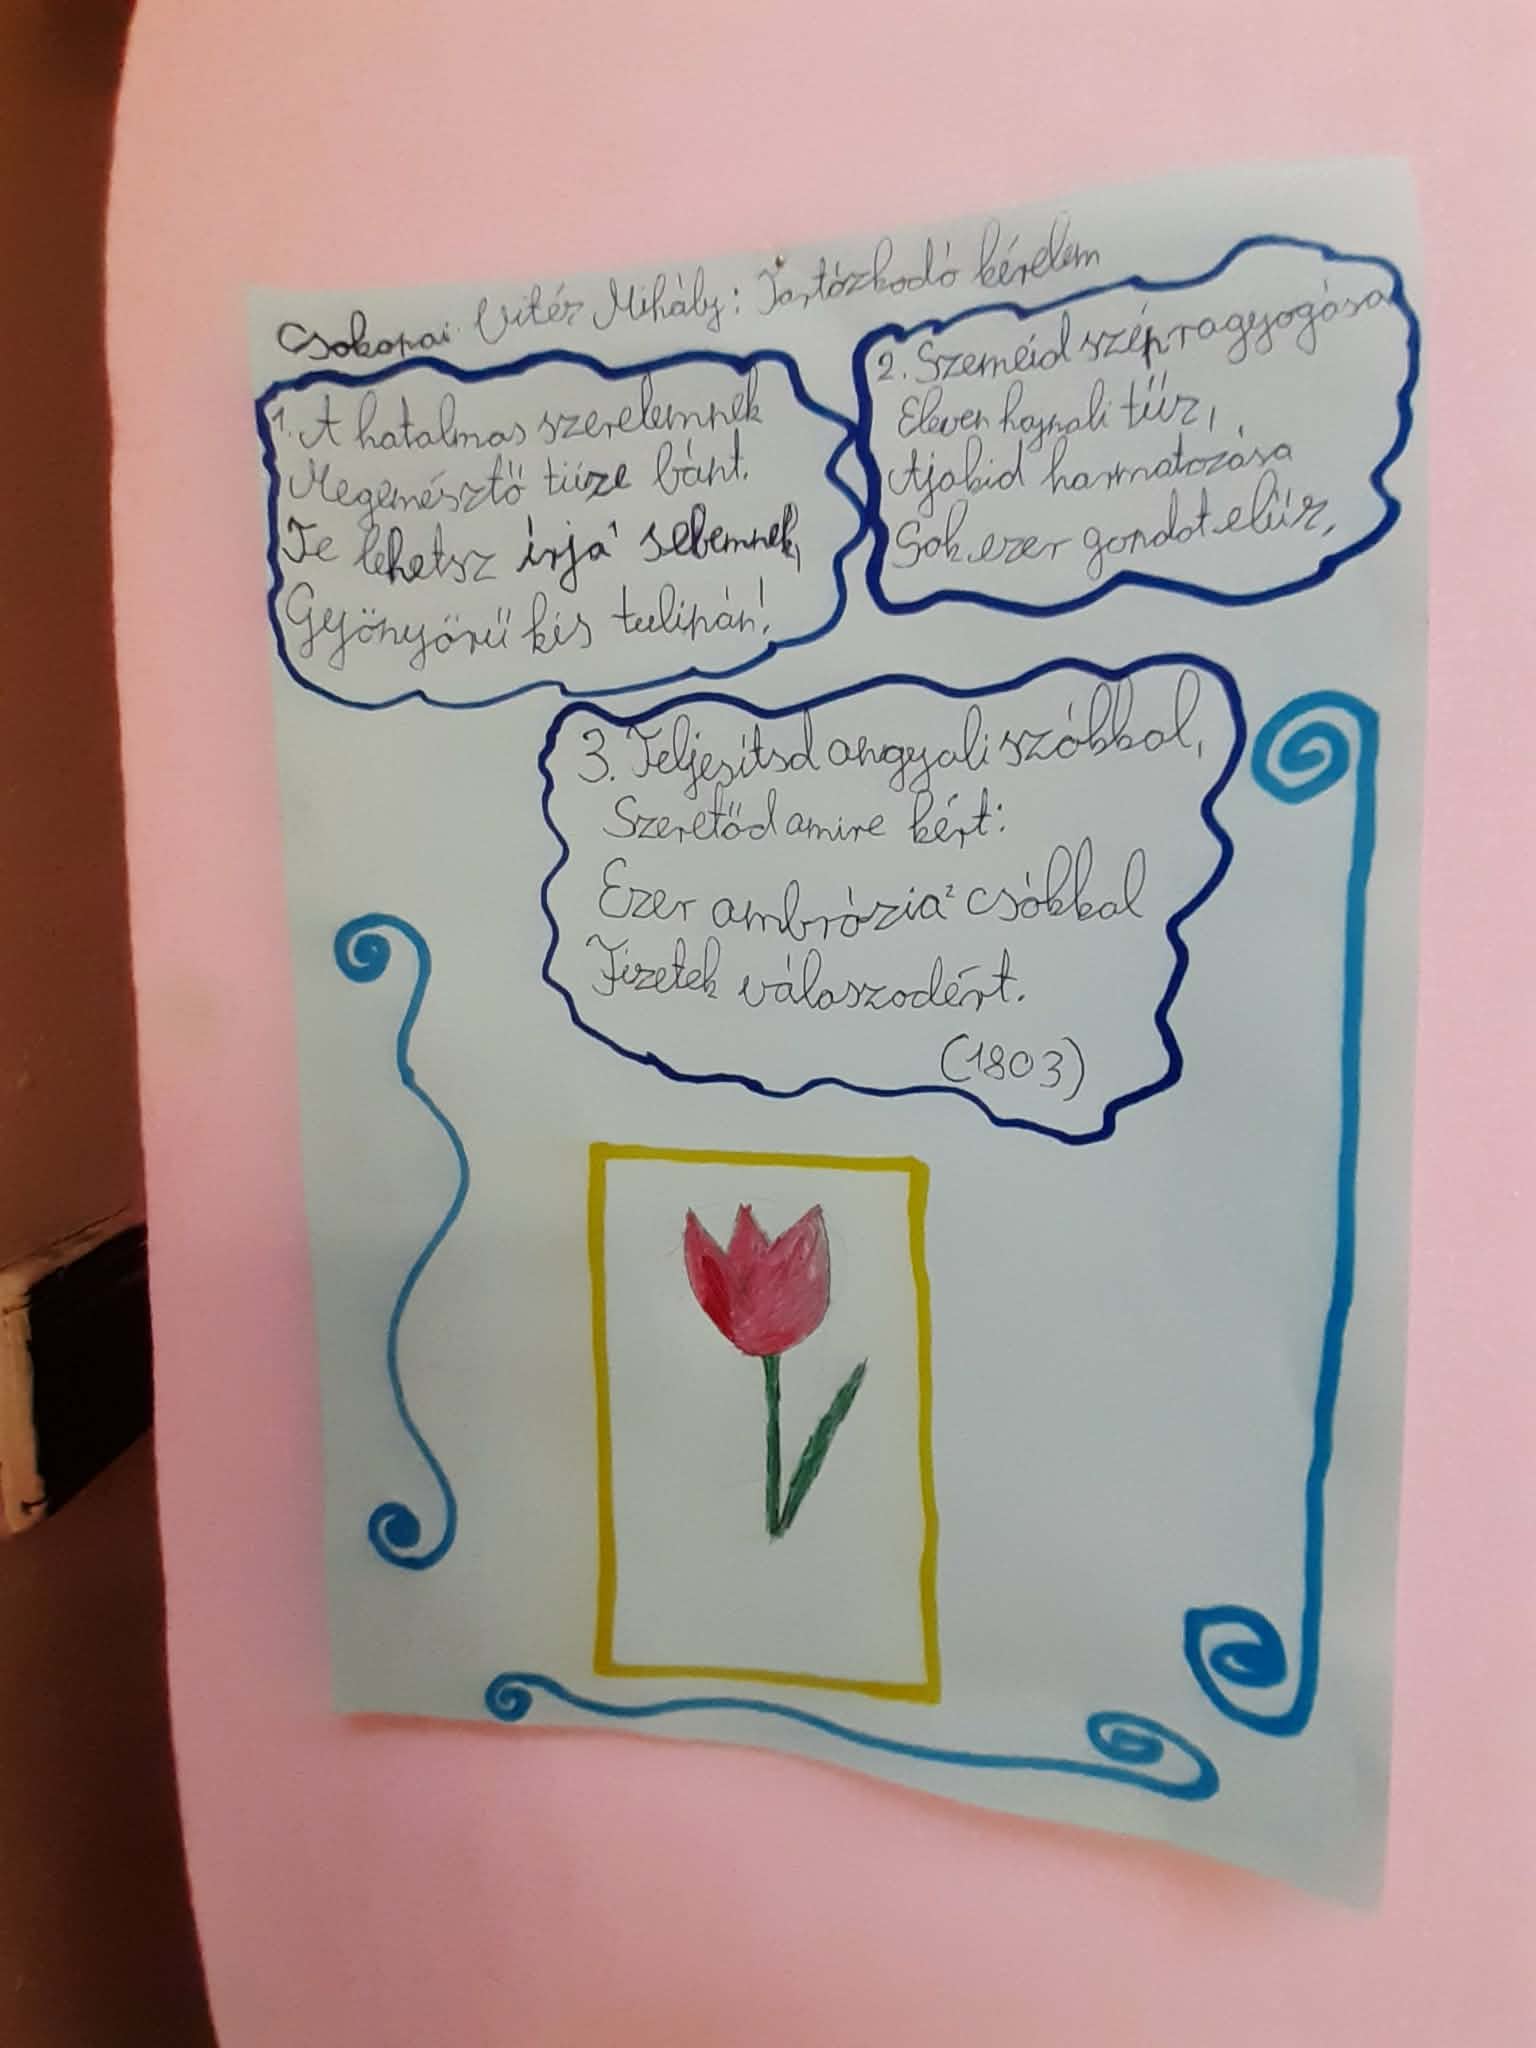 Csokonai Vitéz Mihály: Tartózkodó kérelem
1. A hatalmas szerelemnek
Megemésztő tüze bánt.
Te lehetsz írja¹ sebemnek,
Gyönyörű kis tulipán!
2. Szemeid szép ragyogása
Eleven hajnali tűz,
Ajakid harmatozása
Sok ezer gondot elűz,
3. Teljesítsd angyali szókkal,
Szeretőd amire kért:
Ezer ambrózia² csókkal
Fizetek válaszodért.
(1803)